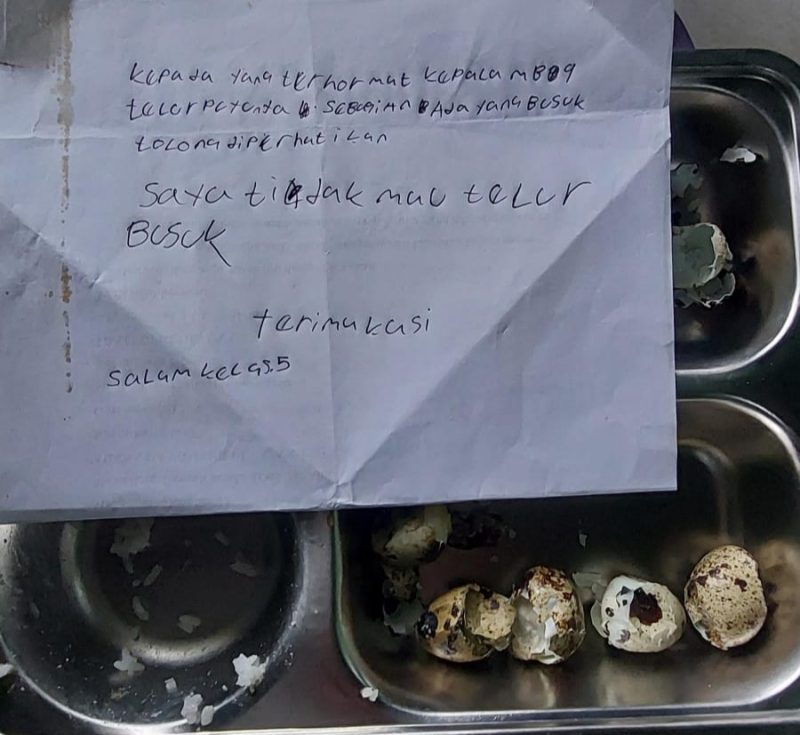 kepada yang terhormat kepala MBG9
telor peyenya sebagian Ada yang Busuk
tolong diperhatikan
saya tidak mau telur
Busuk
terimakasi
salam kelas.5